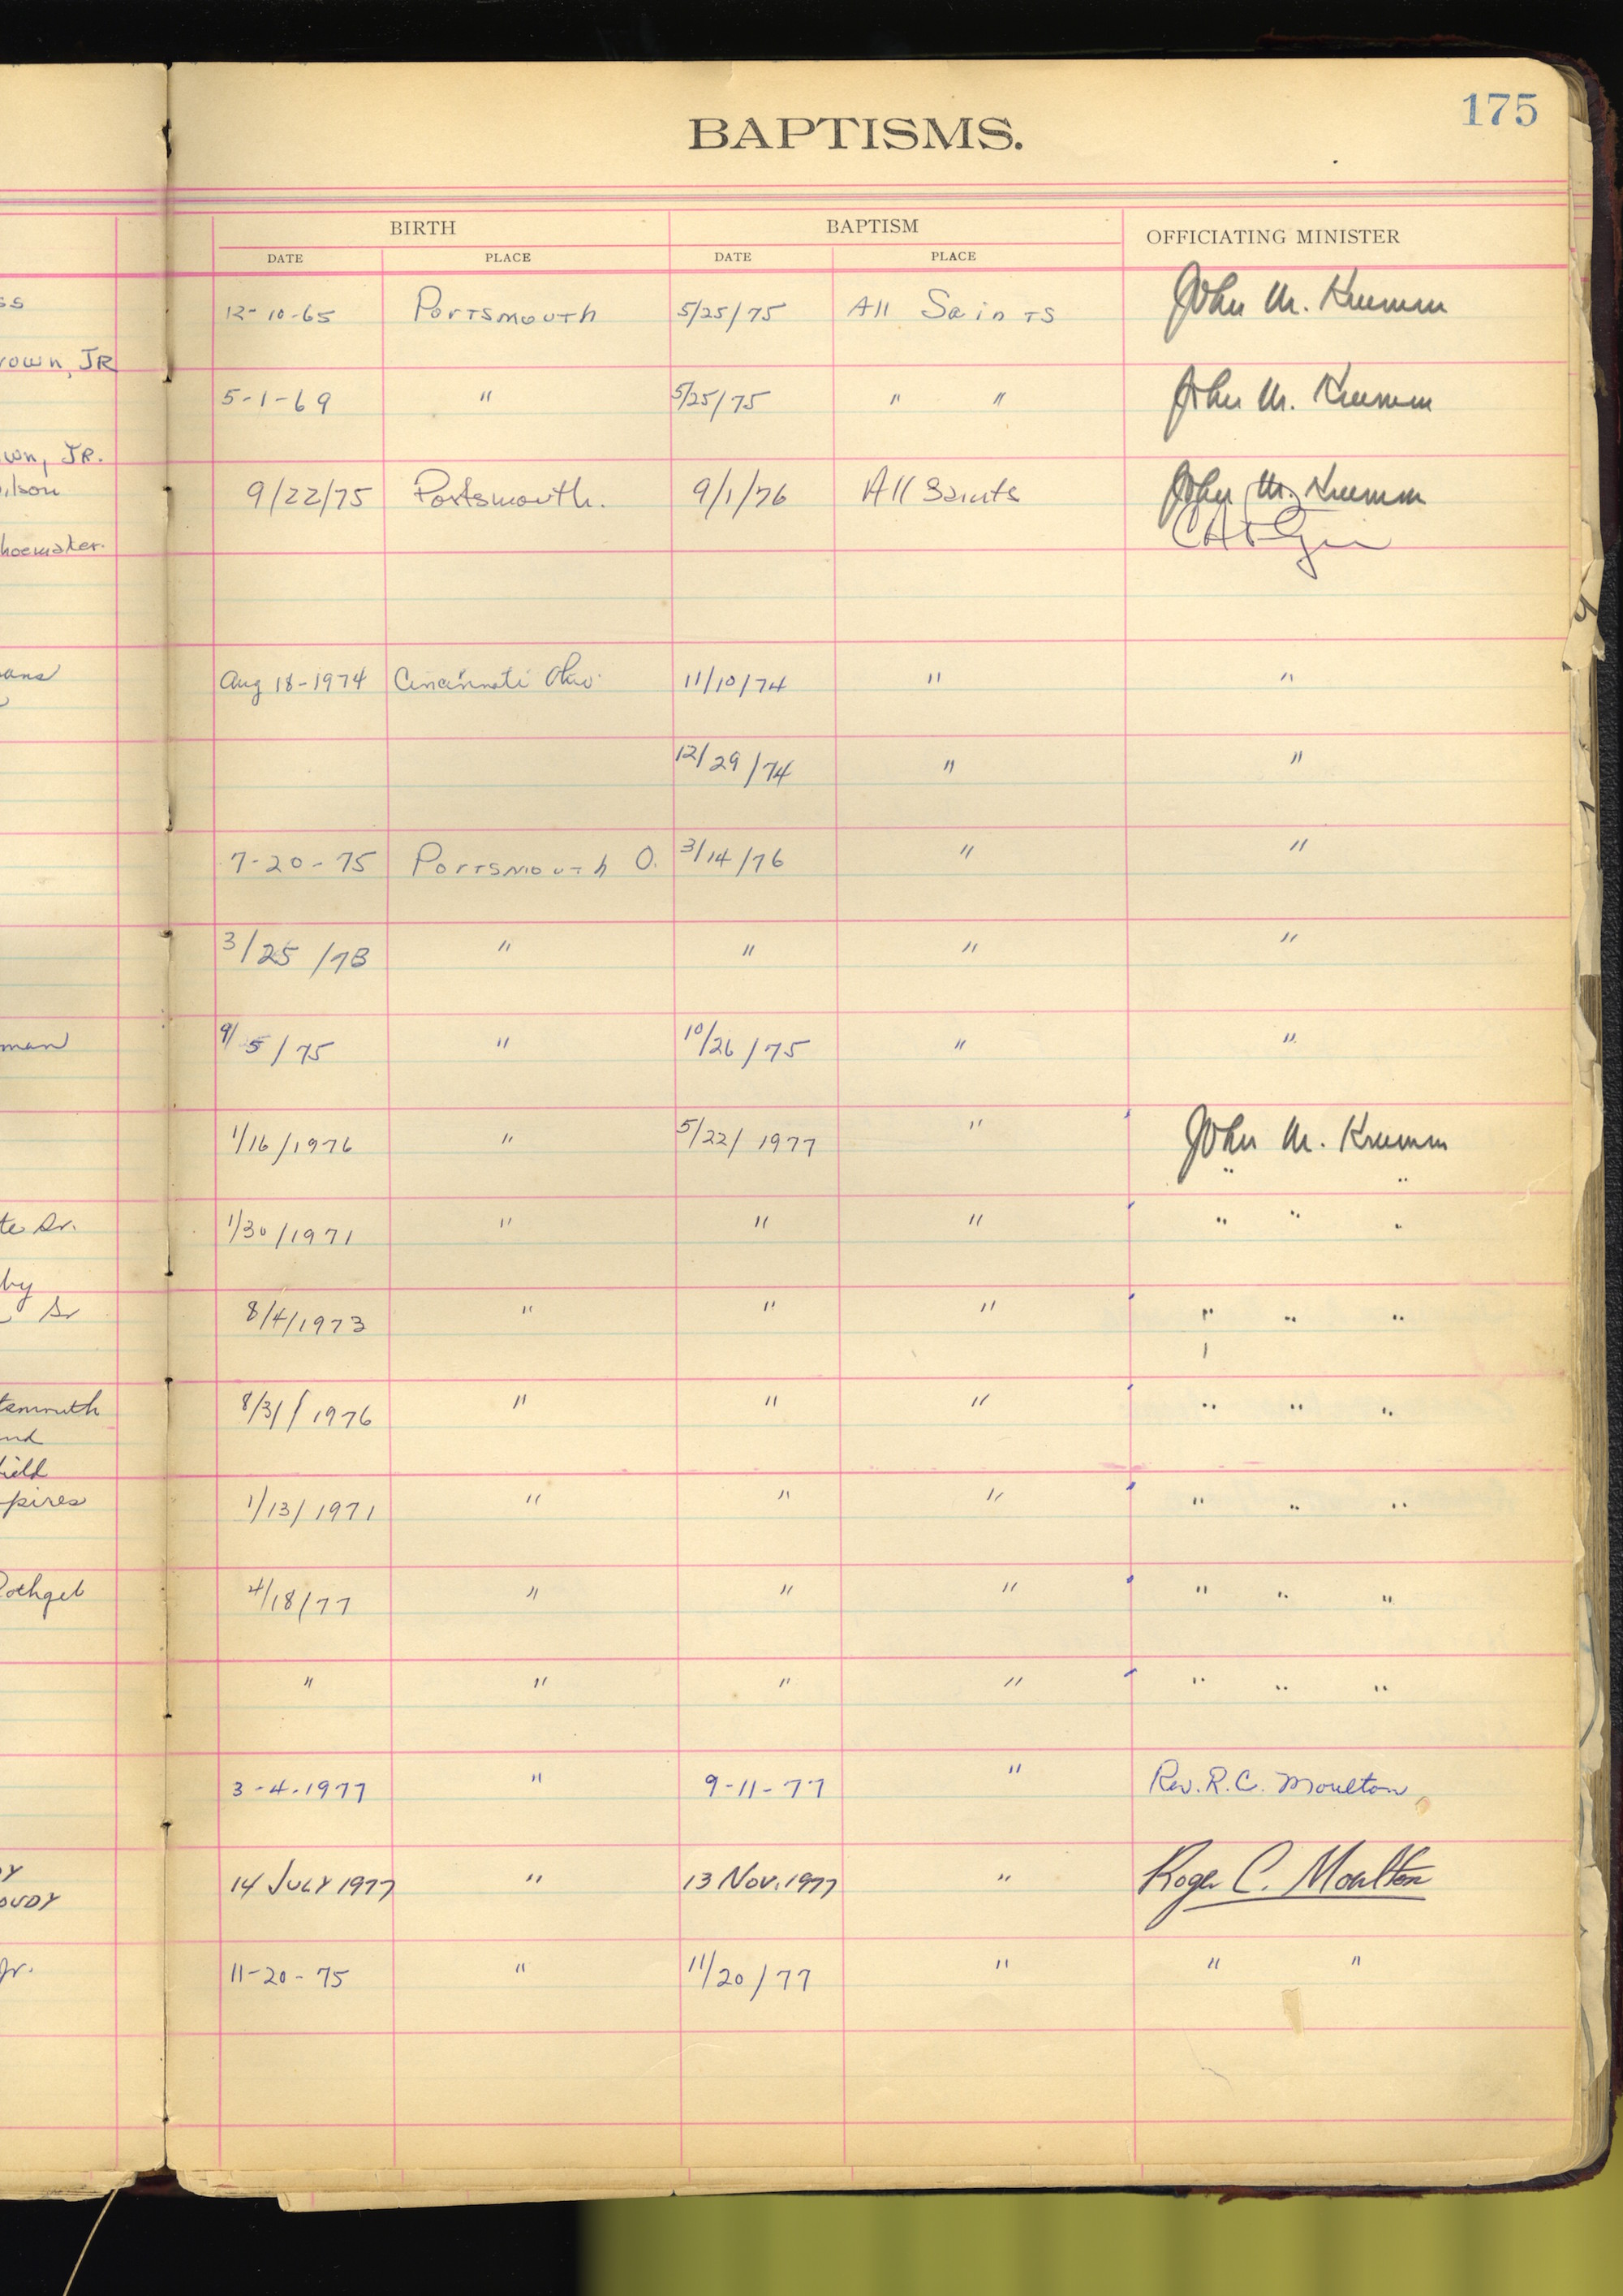 175
BAPTISMS.
BIRTH BAPTISM OFFICIATING MINISTER
DATE PLACE DATE PLACE
12-10-65 Portsmouth 5/25/75 All Saints John M. Krumm
rown, JR
5-1-69 " 5/25/75 " " John M. Krumm
wn, JR.
ilson 9/22/75 Portsmouth. 9/1/76 All Saints John M. Krumm
hoemaker.
ans Aug 18-1974 Cincinnati Ohio 11/10/74 " "
12/29/74 " "
7-20-75 Portsmouth O. 3/14/76 " "
3/25/73 " " " "
man 9/5/75 " 10/26/75 " "
1/16/1976 " 5/22/1977 " John M. Krumm
te Sr. 1/30/1971 " " " " " "
by
Sr 8/4/1973 " " " " " "
tsmouth 8/31/1976 " " " " " "
nd
ield
pires 1/13/1971 " " " " " "
Rothgeb 4/18/77 " " " " " "
" " " " " " "
3-4-1977 " 9-11-77 " Rev. R. C. Moulton
y
oudy 14 July 1977 " 13 Nov. 1977 " Roger C. Moulton
Jr. 11-20-75 " 11/20/77 " " "